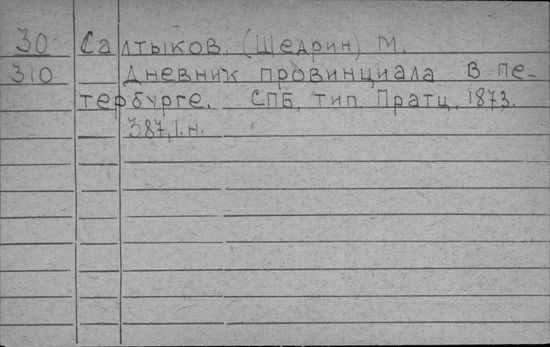 30 Салтыков. (Щедрин) М.
310 Дневник провинциала в пе-
тербурге. СПБ, тип Пратц, 1873.
387,1.н.